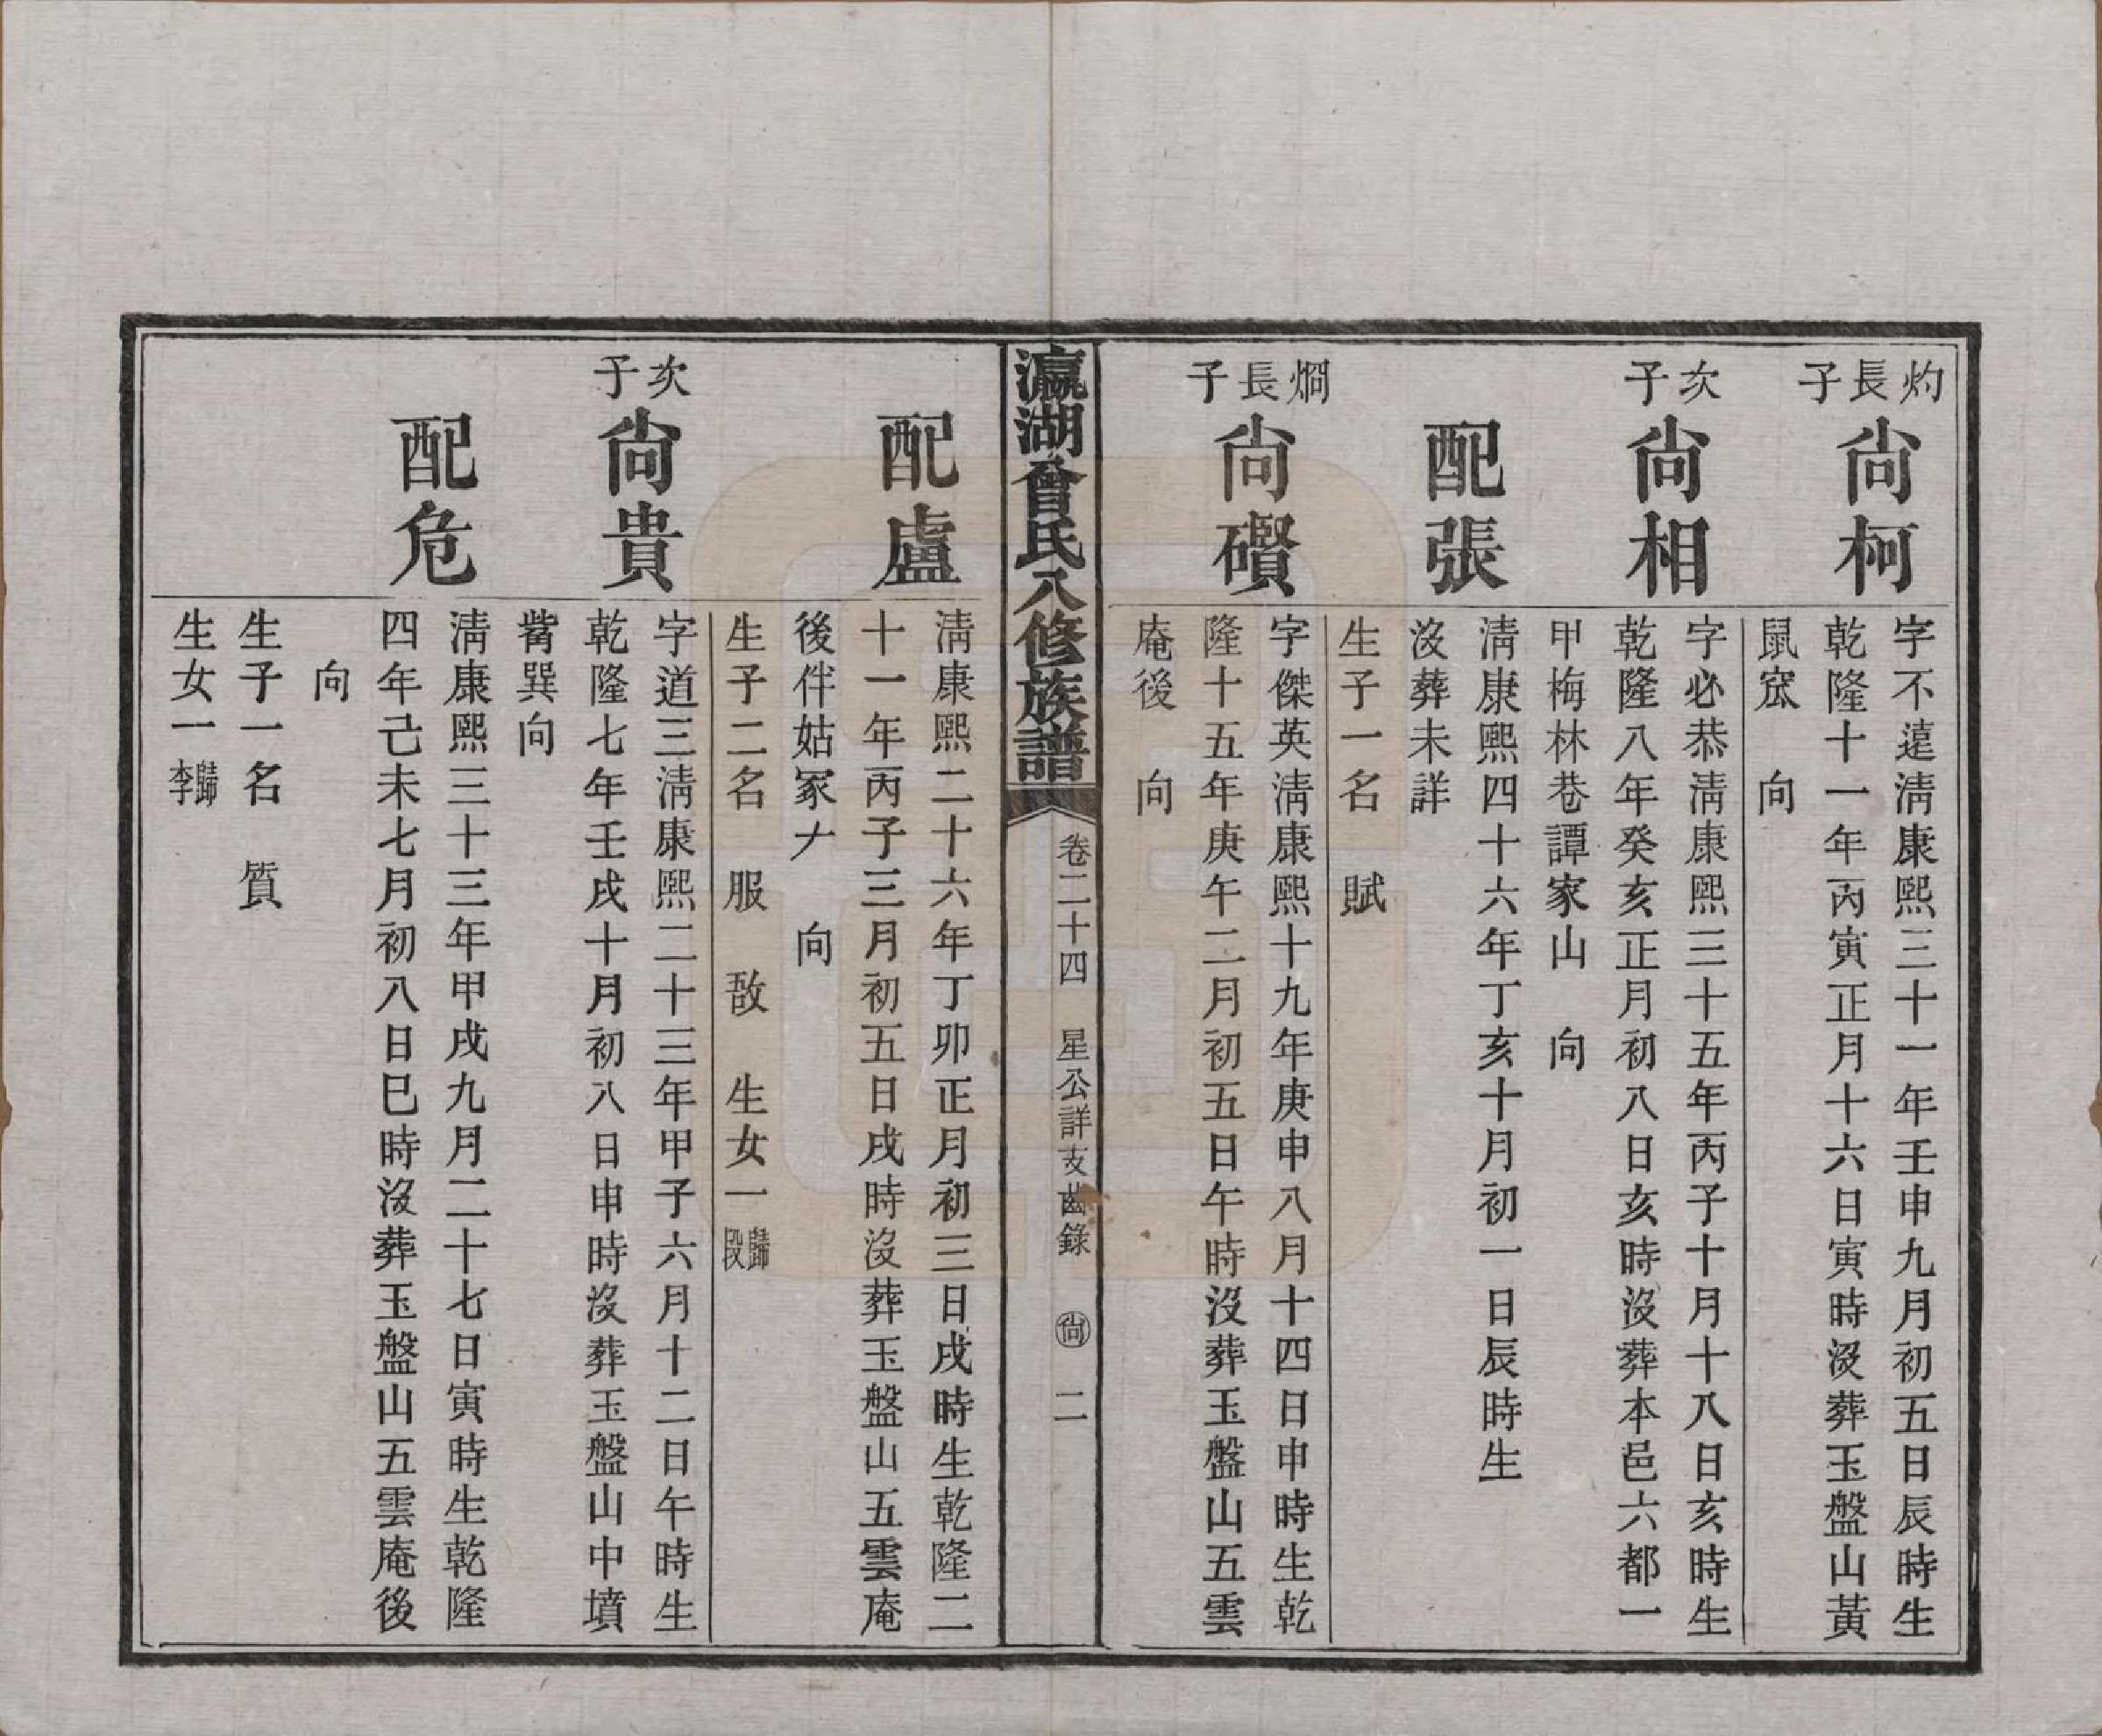 灼長子
尙柯
字不遠淸康熙三十一年壬申九月初五日辰時生
乾隆十一年丙寅正月十六日寅時沒葬玉盤山黃
鼠窊　向
次子
尙相
字必恭淸康熙三十五年丙子十月十八日亥時生
乾隆八年癸亥正月初八日亥時沒葬本邑六都一
甲梅林巷譚家山　向
配張
淸康熙四十六年丁亥十月初一日辰時生
沒葬未詳
生子一名　賦
燗長子
尙礥
字傑英淸康熙十九年庚申八月十四日申時生乾
隆十五年庚午二月初五日午時沒葬玉盤山五雲
庵後　向
瀛湖曾氏八修族譜
卷二十四　星公詳支齒錄　尙　二
配盧
淸康熙二十六年丁卯正月初三日戌時生乾隆二
十一年丙子三月初五日戌時沒葬玉盤山五雲庵
後伴姑冢𠂇　向
生子二名　服　敔　生女一歸段
次子
尙貴
字道三淸康熙二十三年甲子六月十二日午時生
乾隆七年壬戌十月初八日申時沒葬玉盤山中墳
觜巽向
配危
淸康熙三十三年甲戌九月二十七日寅時生乾隆
四年己未七月初八日巳時沒葬玉盤山五雲庵後
向
生子一名　質
生女一歸李